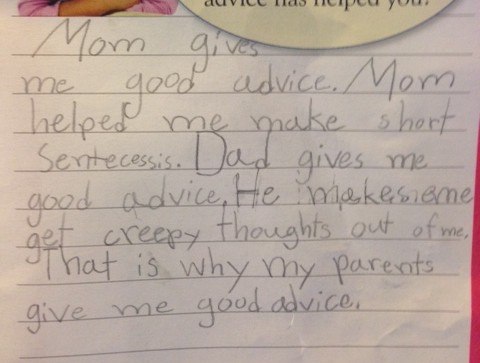 advice has helped you?
Mom gives
me good advice. Mom
helped me make short
Sentecessis. Dad gives me
good advice. He makes me
get creepy thoughts out of me.
That is why my parents
give me good advice.